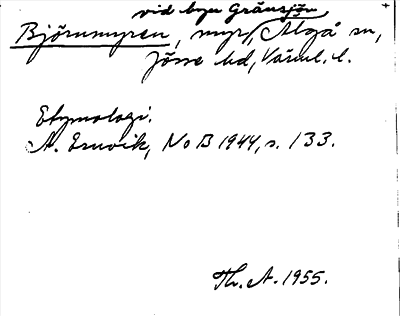 vid byn Gränsjön
Björnmyren, myr, Älgå sn,
Jösse hd, Värml. l.
Etymologi:
A. Ernvik, NoB 1944, s. 133.
Th. A. 1955.